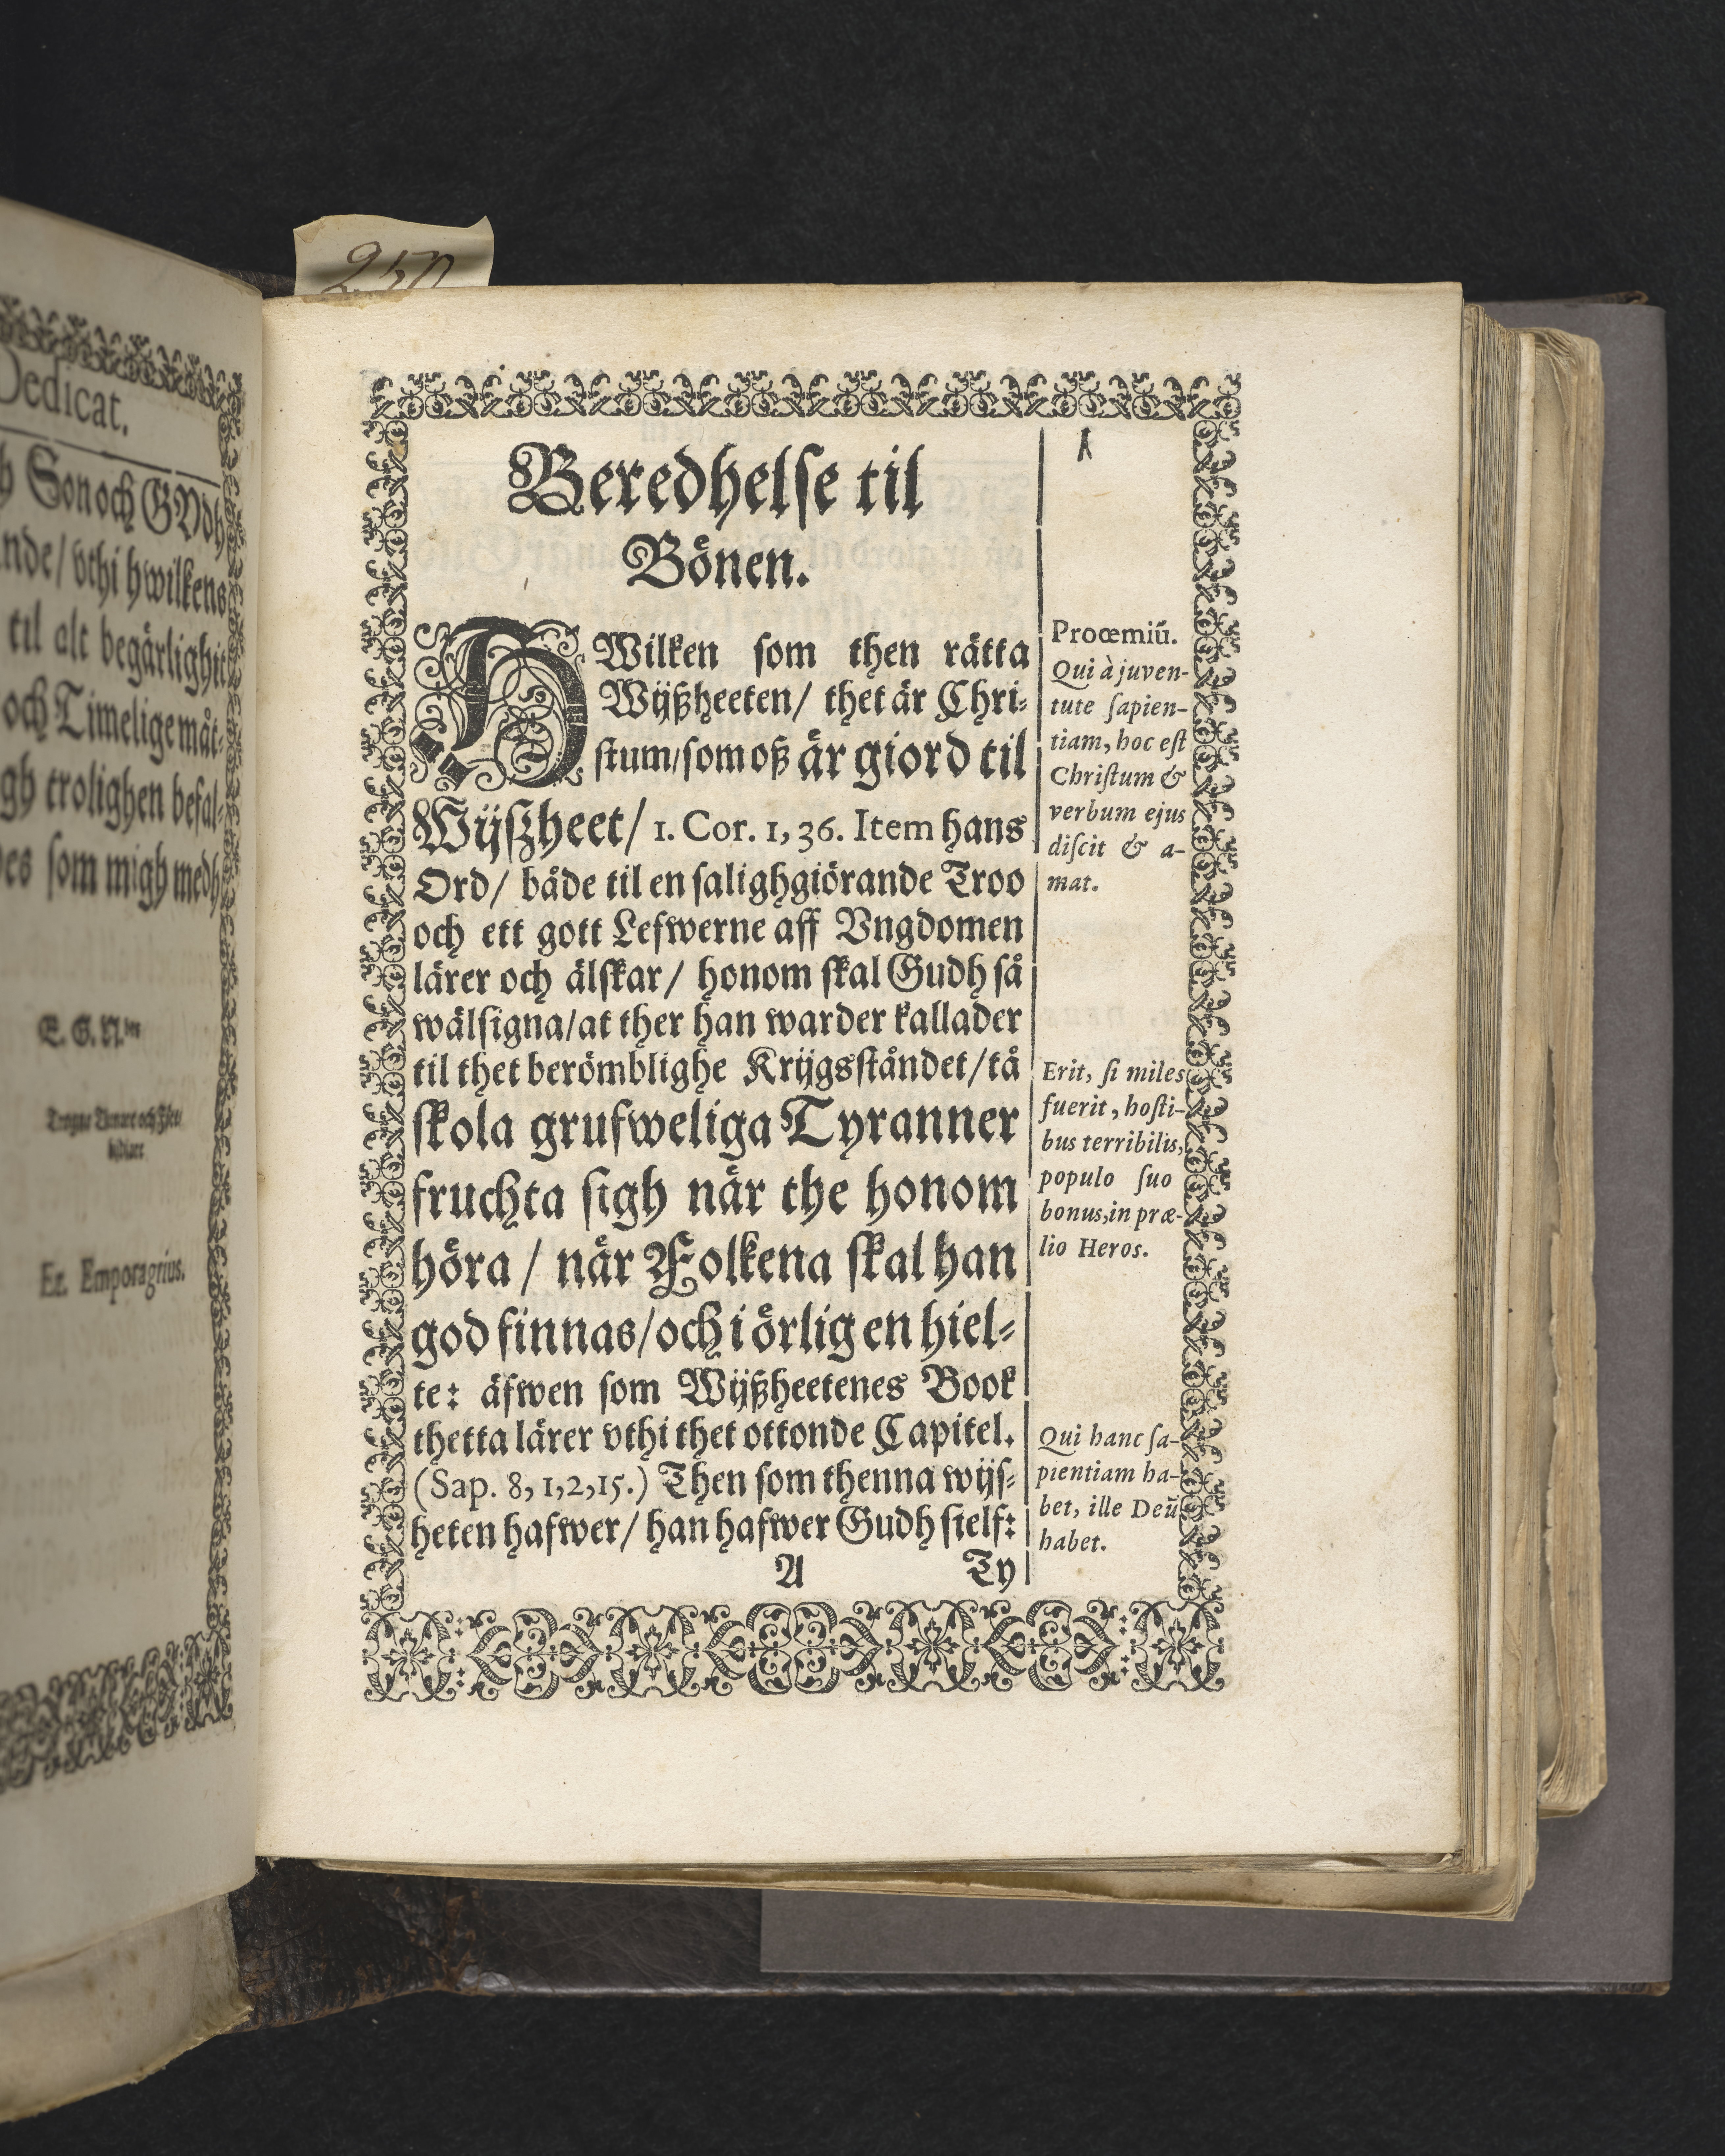 250
Dedicat.
Son och GUdh
nde/ vthi hwilkens
til alt begärlighit
och Timelige måt-
gh trolighen befal-
som migh medh
E. G. N.
Er. Emporagrius.
1
Beredhelse til
Bönen.
HWilken som then rätta
Wijßheeten/ thet är Chri-
stum/som oß är giord til
Wijßheet/ 1. Cor. 1, 36. Item hans
Ord/ både til en salighgiörande Troo
och ett gott Lefwerne aff Vngdomen
lärer och älskar/ honom skal Gudh så
wälsigna/at ther han warder kallader
til thet berömblighe Krijgsståndet/tå
skola grufweliga Tyranner
fruchta sigh när the honom
höra / när Folkena skal han
god finnas/och i örlig en hiel-
te: äfwen som Wijßheetenes Book
thetta lärer vthi thet ottonde Capitel.
(Sap. 8, 1,2,15.) Then som thenna wijs-
heten hafwer/ han hafwer Gudh sielf:
A Ty
Proœmiũ.
Qui à juven-
tute sapien-
tiam, hoc est
Christum &
verbum ejus
discit & a-
mat.
Erit, si miles
fuerit, hosti-
bus terribilis,
populo suo
bonus, in præ-
lio Heros.
Qui hanc sa-
pientiam ha-
bet, ille Deũ
habet.